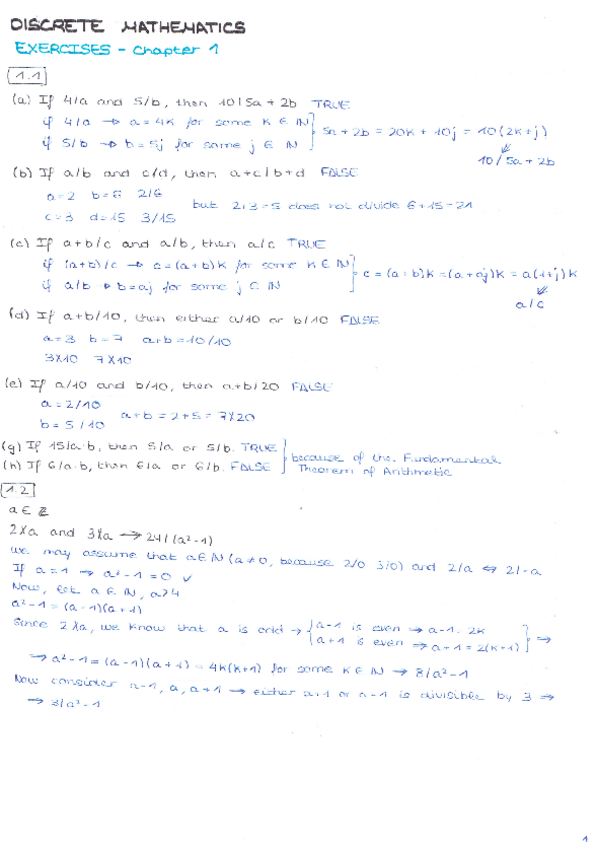 DISCRETE MATHEMATICS
EXERCISES - Chapter 1
1.1
(a) If 4/a and 5/b, then 10/5a + 2b TRUE
if 4/a → a = 4k for some k ∈ ℕ
if 5/b → b = 5j for some j ∈ ℕ } 5a + 2b = 20k + 10j = 10(2k+j)
10/5a + 2b
(b) If a/b and c/d, then a+c/b+d FALSE
a=2 b=6 2/6
c=3 d=15 3/15 but 2+3=5 does not divide 6+15=21
(c) If a+b/c and a/b, then a/c TRUE
if (a+b)/c → c=(a+b)k for some k ∈ ℕ
if a/b → b=aj for some j ∈ ℕ } c = (a+b)k = (a+aj)k = a(1+j)k
a/c
(d) If a+b/10, then either a/10 or b/10 FALSE
a=3 b=7 a+b=10/10
3∤10 7∤10
(e) If a/10 and b/10, then a+b/20 FALSE
a=2/10
b=5/10 a+b=2+5=7∤20
(g) If 15/a·b, then 5/a or 5/b. TRUE
(h) If 6/a·b, then 6/a or 6/b. FALSE } because of the Fundamental Theorem of Arithmetic
1.2
a ∈ ℤ
2∤a and 3∤a → 24/(a²-1)
we may assume that a∈ℕ (a≠0, because 2/0 3/0) and 2/a ⇔ 2/-a
If a=1 → a²-1=0 ✓
Now, let a ∈ ℕ, a>4
a²-1=(a-1)(a+1)
Since 2∤a, we know that a is odd → { a-1 is even → a-1=2k
a+1 is even → a+1=2(k+1) } →
→ a²-1=(a-1)(a+1)=4k(k+1) for some k∈ℕ → 8/a²-1
Now consider a-1, a, a+1 → either a+1 or a-1 is divisible by 3 →
→ 3/a²-1
1